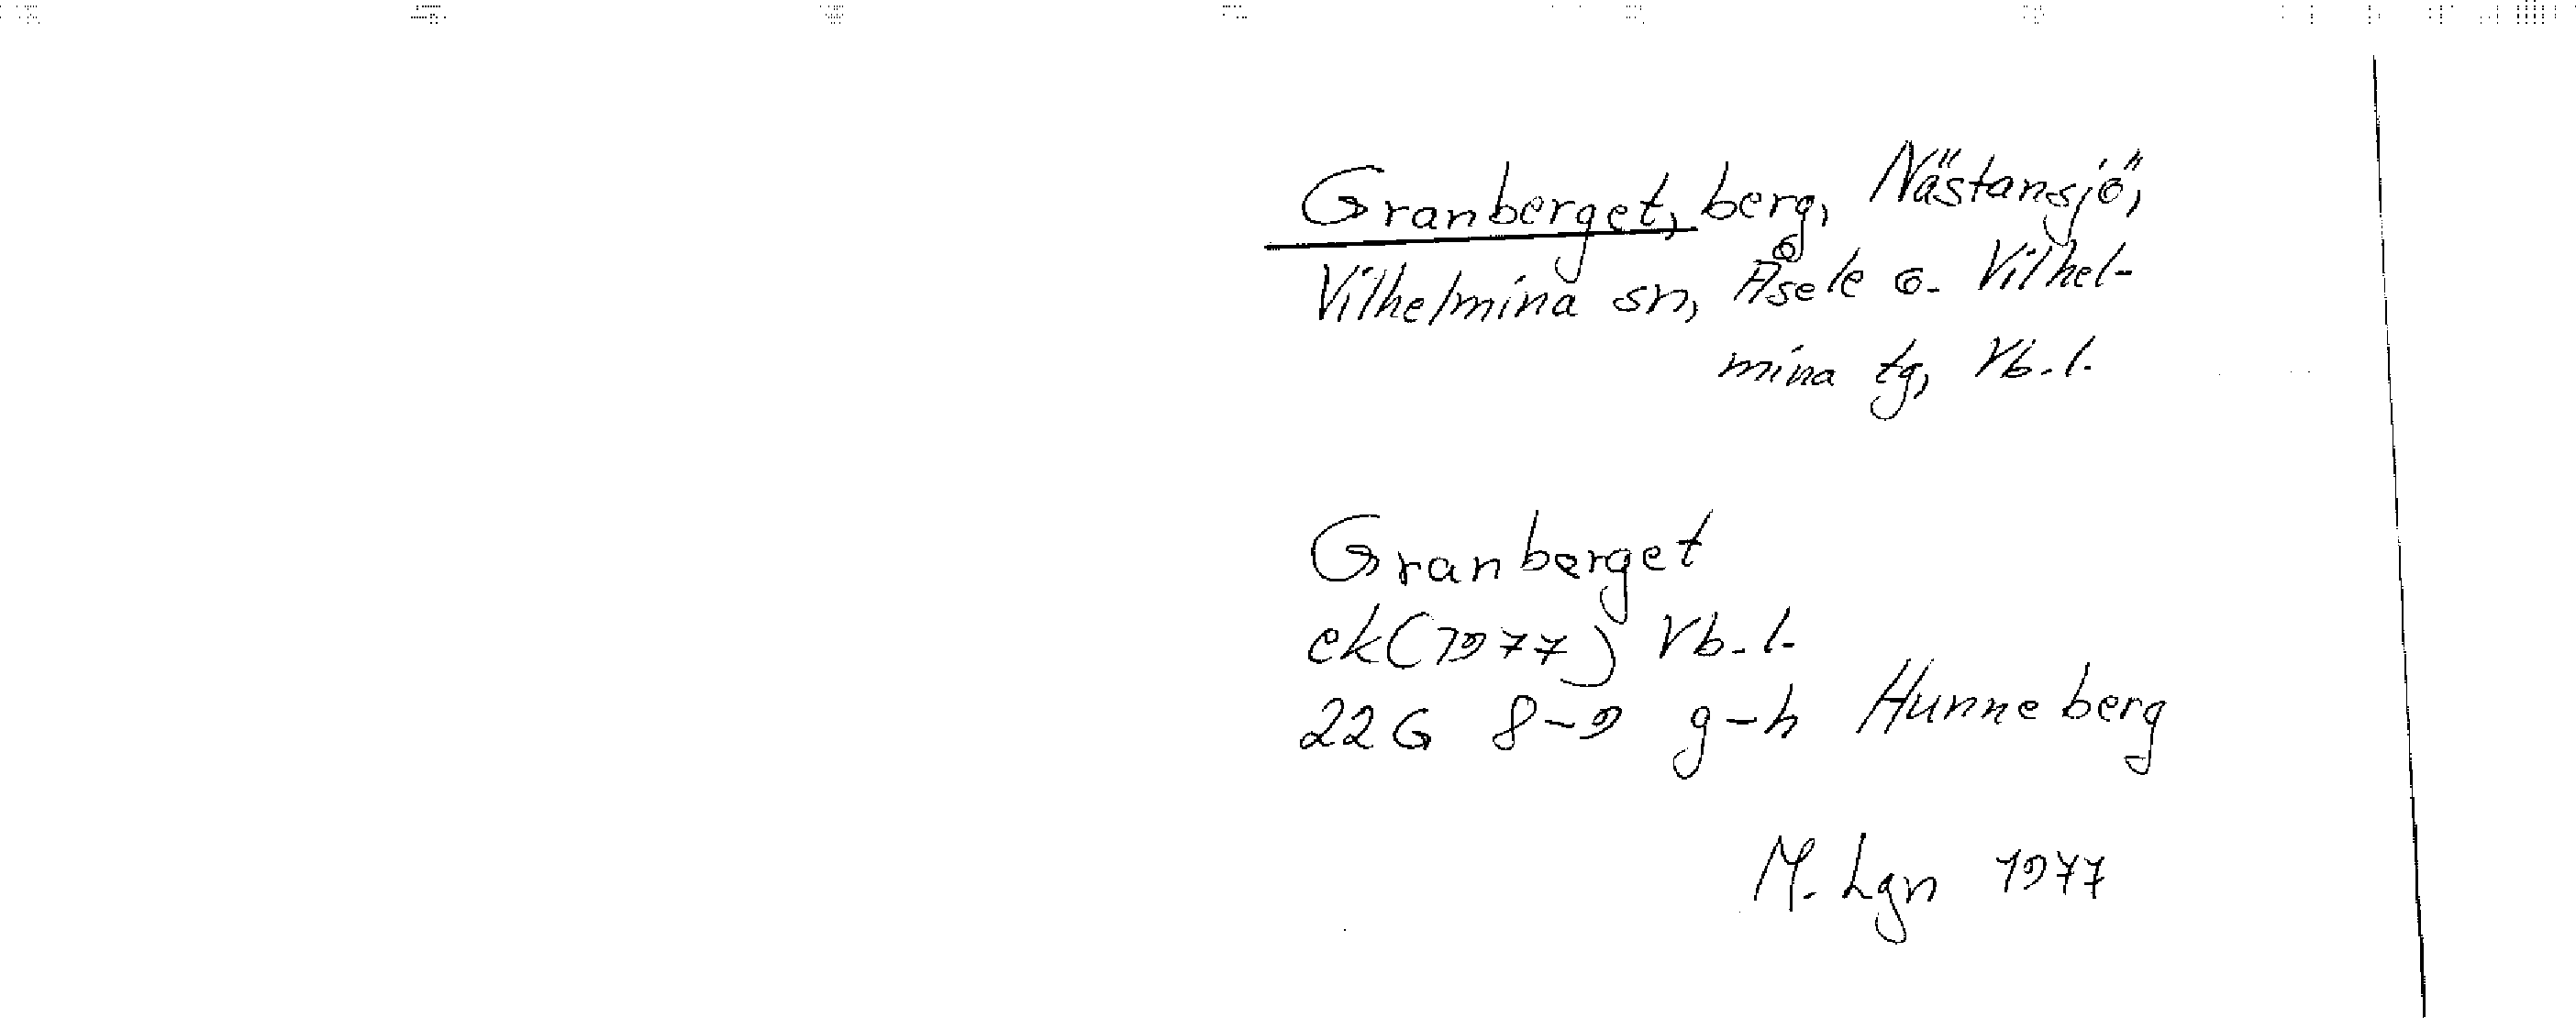 Granberget, berg, Nästansjö,
Vilhelmina sn, Åsele o. Vilhel-
mina tg, Vb. l.
Granberget
ek (1977) Vb. l.
22 G 8-9 g-h Hunneberg
M. Lgn 1977